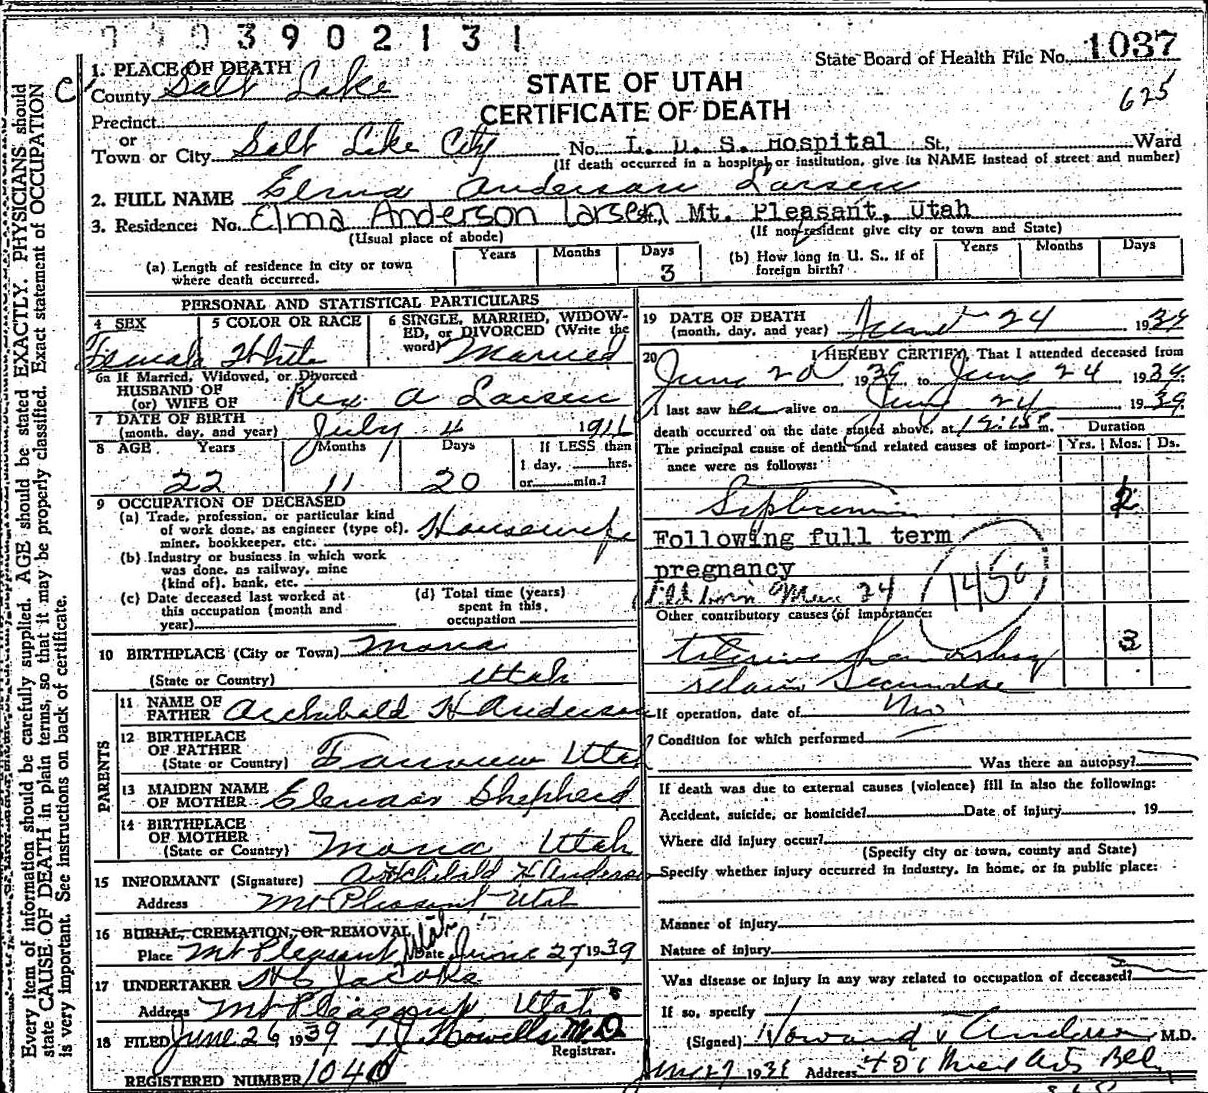 0 0 0 3 9 0 2 1 3 1
State Board of Health File No. 1037
625
STATE OF UTAH
CERTIFICATE OF DEATH
1. PLACE OF DEATH
County Salt Lake
Precinct
or
Town or City Salt Lake City No. L. D. S. Hospital St., Ward
(If death occurred in a hospital or institution, give its NAME instead of street and number)
2. FULL NAME Elma Anderson Larsen
3. Residence: No. Elma Anderson Larsen, Mt. Pleasant, Utah
(Usual place of abode) (If non-resident give city or town and State)
(a) Length of residence in city or town where death occurred. Years Months Days 3
(b) How long in U. S., if of foreign birth? Years Months Days
PERSONAL AND STATISTICAL PARTICULARS
4 SEX Female
5 COLOR OR RACE White
6 SINGLE, MARRIED, WIDOWED, or DIVORCED (Write the word) Married
6a If Married, Widowed, or Divorced
HUSBAND OF
(or) WIFE OF Rex A Larsen
7 DATE OF BIRTH
(month, day, and year) July 4 1916
8 AGE Years 22 Months 11 Days 20 If LESS than
1 day, hrs.
or min.?
9 OCCUPATION OF DECEASED
(a) Trade, profession, or particular kind
of work done, as engineer (type of),
miner, bookkeeper, etc. Housewife
(b) Industry or business in which work
was done, as railway, mine
(kind of), bank, etc.
(c) Date deceased last worked at
this occupation (month and
year)
(d) Total time (years)
spent in this
occupation
10 BIRTHPLACE (City or Town) Mona
(State or Country) Utah
PARENTS
11 NAME OF
FATHER Archibald H Anderson
12 BIRTHPLACE
OF FATHER
(State or Country) Fairview Utah
13 MAIDEN NAME
OF MOTHER Elenaor Shepherd
14 BIRTHPLACE
OF MOTHER
(State or Country) Mona Utah
15 INFORMANT (Signature) Archibald H Anderson
Address Mt Pleasant Utah
16 BURIAL, CREMATION, OR REMOVAL
Place Mt Pleasant Utah Date June 27 1939
17 UNDERTAKER Jacobs
Address Mt Pleasant Utah
18 FILED June 26 1939 T J Howells M.D.
Registrar.
REGISTERED NUMBER 1040
19 DATE OF DEATH
(month, day, and year) June 24 1939
20 I HEREBY CERTIFY, That I attended deceased from
June 20 1939 to June 24 1939.
I last saw her alive on June 24 1939
death occurred on the date stated above, at 12:15 m.
Duration
The principal cause of death and related causes of importance were as follows:
Yrs. Mos. Ds.
Septicemia
Following full term
pregnancy
1450
Other contributory causes of importance:
3
Secundae
If operation, date of No
Condition for which performed
Was there an autopsy?
If death was due to external causes (violence) fill in also the following:
Accident, suicide, or homicide? Date of injury 19
Where did injury occur?
(Specify city or town, county and State)
Specify whether injury occurred in industry, in home, or in public place:
Manner of injury
Nature of injury
Was disease or injury in any way related to occupation of deceased?
If so, specify
(Signed) Howard Anderson M.D.
June 27 1939 Address
Every item of information should be carefully supplied. AGE should be stated EXACTLY. PHYSICIANS should
state CAUSE OF DEATH in plain terms, so that it may be properly classified. Exact statement of OCCUPATION
is very important. See instructions on back of certificate.